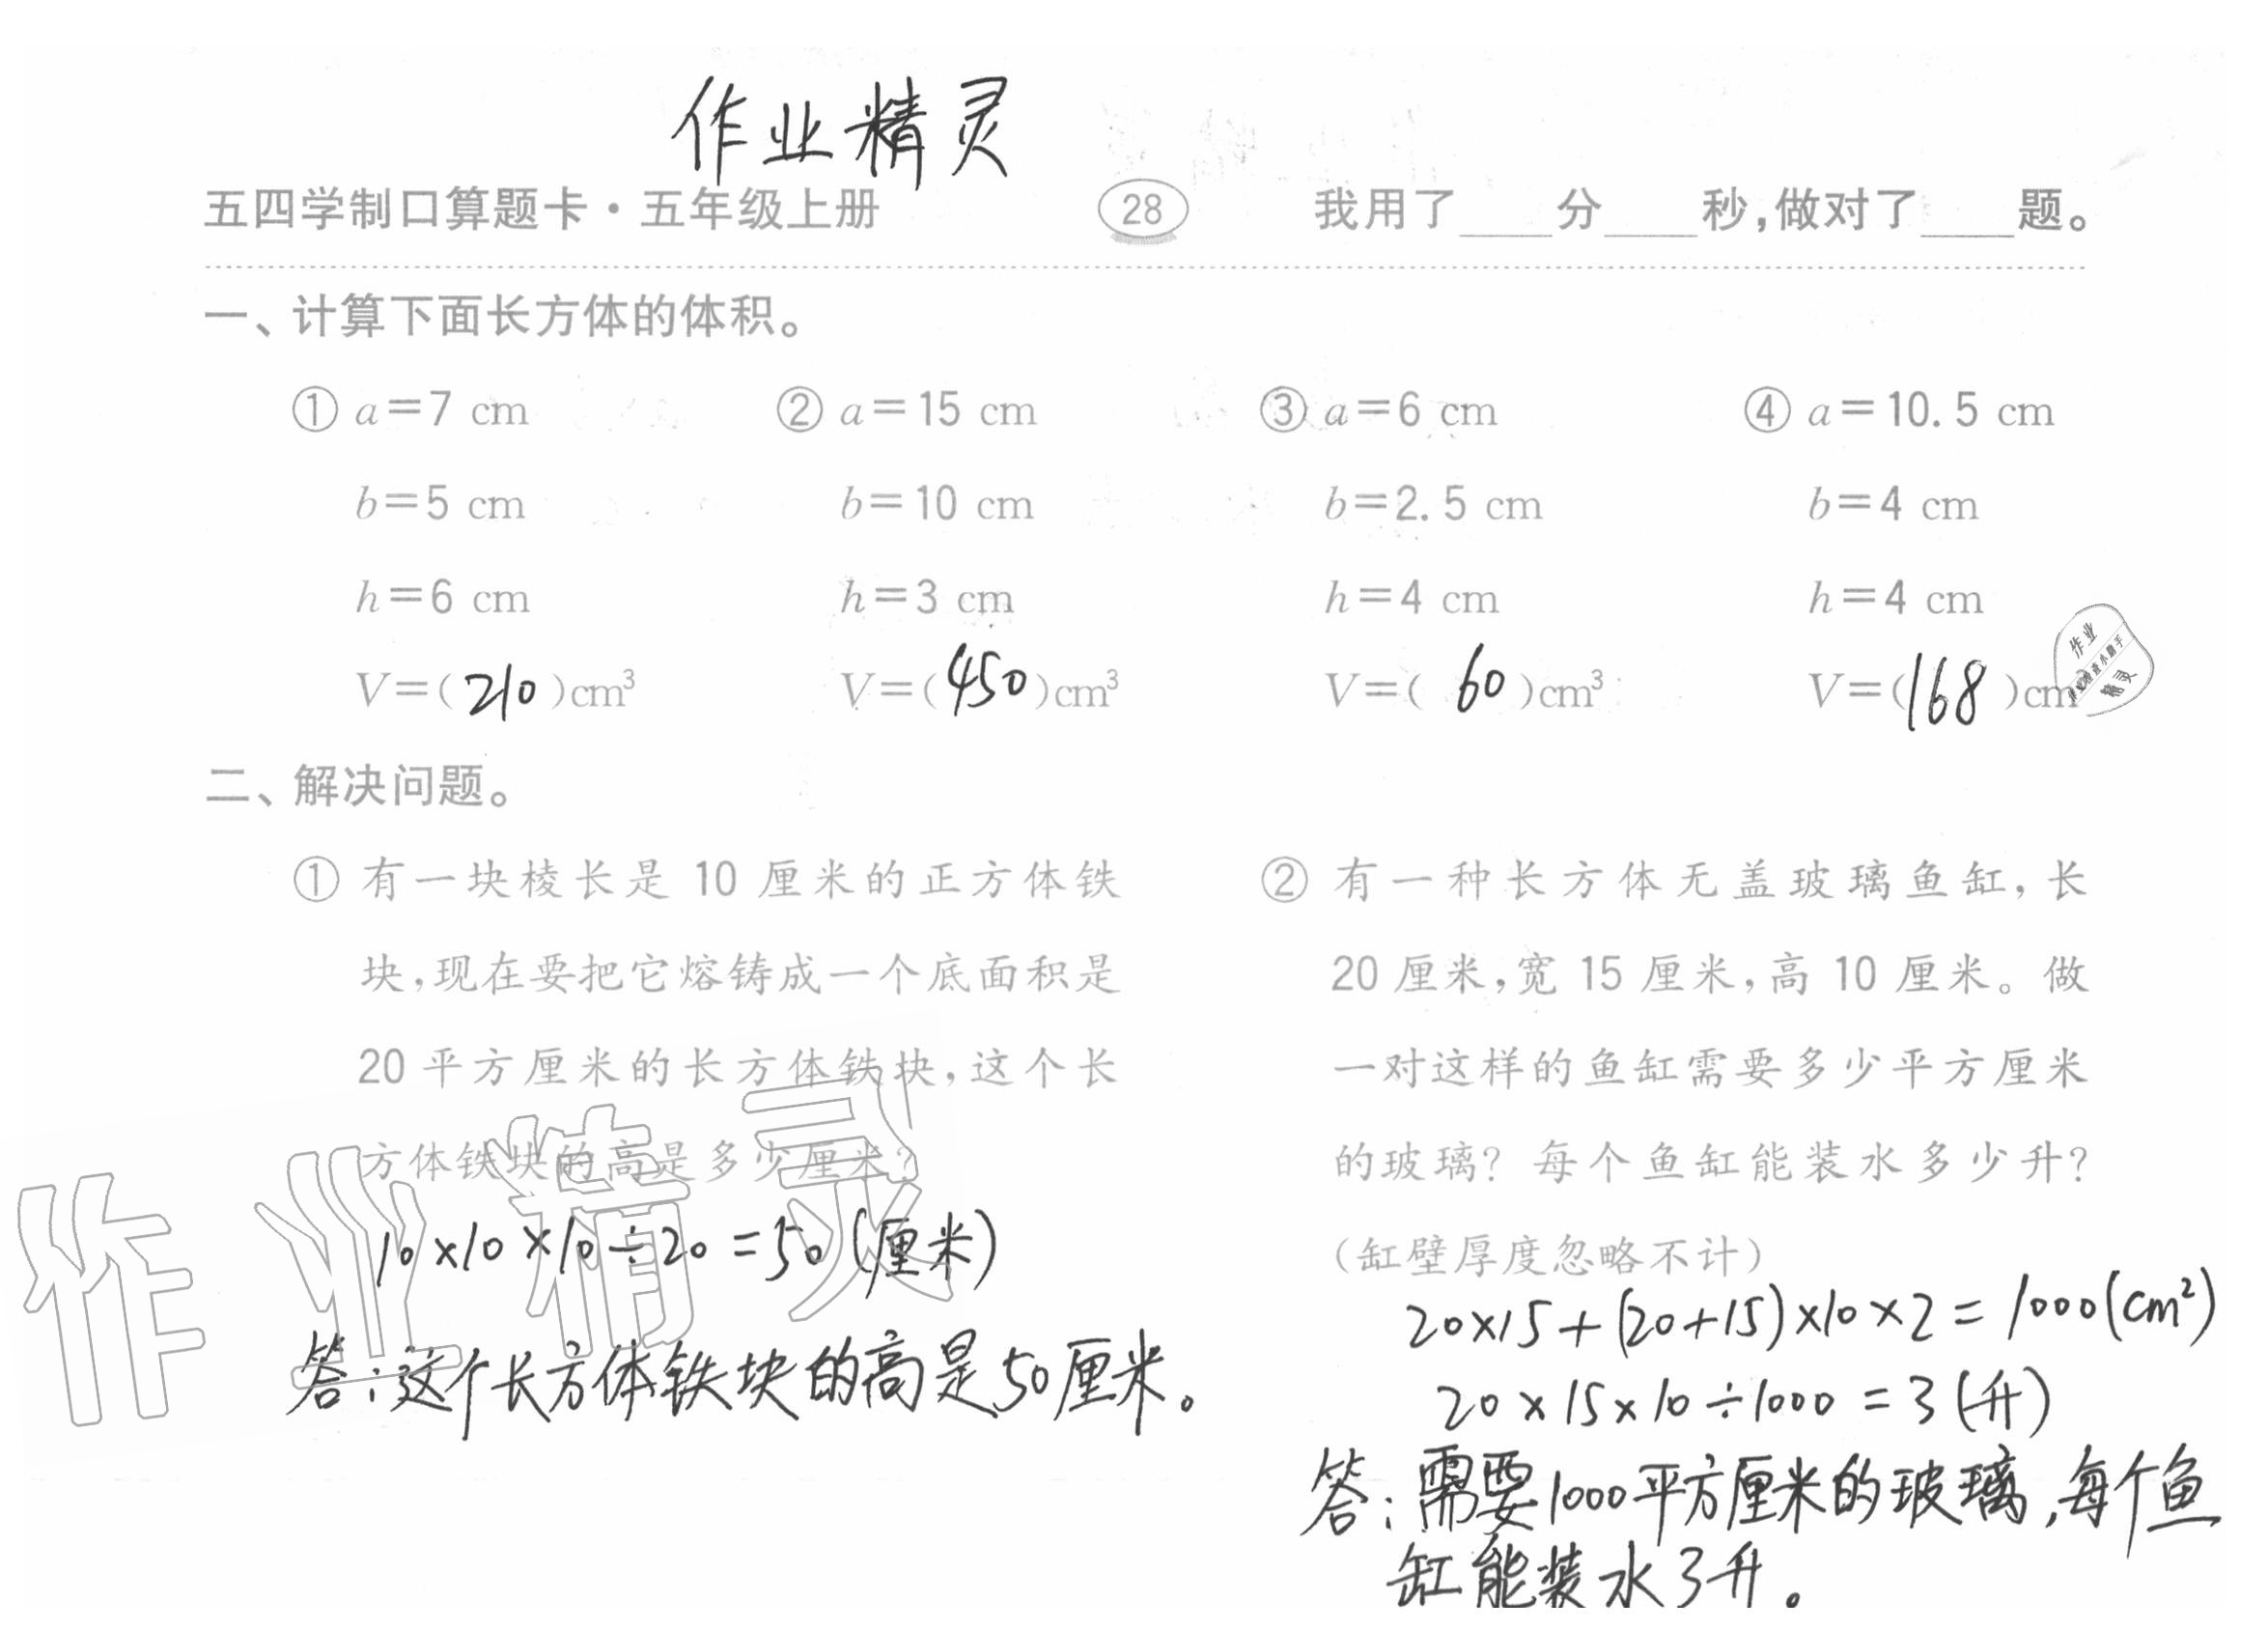 作业精灵
五四学制口算题卡·五年级上册 28 我用了____分____秒,做对了____题。
一、计算下面长方体的体积。
① a=7 cm ② a=15 cm ③ a=6 cm ④ a=10.5 cm
b=5 cm b=10 cm b=2.5 cm b=4 cm
h=6 cm h=3 cm h=4 cm h=4 cm
V=(210)cm³ V=(450)cm³ V=(60)cm³ V=(168)cm³
作业
精灵
二、解决问题。
① 有一块棱长是 10 厘米的正方体铁
块,现在要把它熔铸成一个底面积是
20 平方厘米的长方体铁块,这个长
方体铁块的高是多少厘米?
10×10×10÷20=50(厘米)
答:这个长方体铁块的高是50厘米。
② 有一种长方体无盖玻璃鱼缸,长
20 厘米,宽 15 厘米,高 10 厘米。做
一对这样的鱼缸需要多少平方厘米
的玻璃? 每个鱼缸能装水多少升?
(缸壁厚度忽略不计)
20×15+(20+15)×10×2=1000(cm²)
20×15×10÷1000=3(升)
答:需要1000平方厘米的玻璃,每个鱼
缸能装水3升。
作业精灵